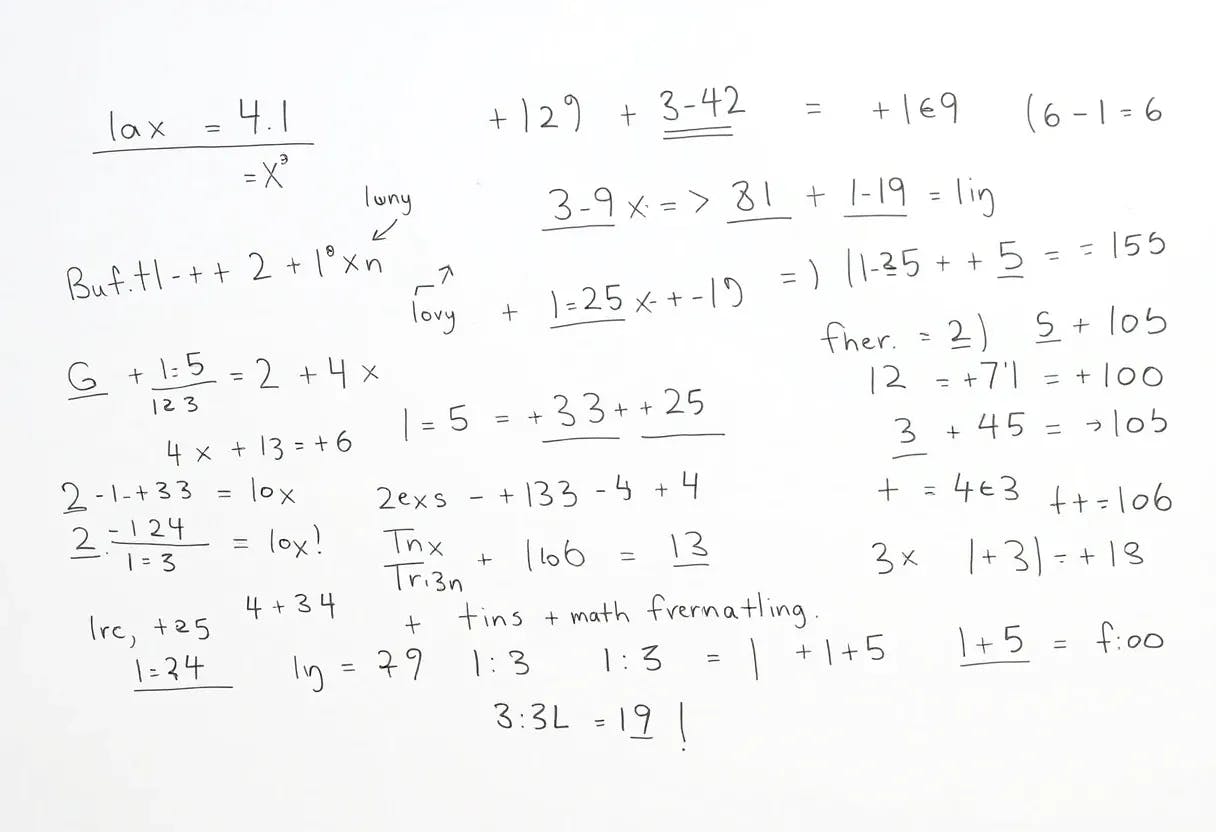 lax = 4.1
= x³
+129 + 3-42 = +1є9 (6-1=6
luny
3-9 x = > 81 + 1-19 = lin
Buf.+1-++ 2 + 1⁰ xn
lovy + 1=25 x + -19 =) (1-35 + + 5 = = 155
fher. = 2) 5 + 105
G + 1:5/123 = 2 + 4 x
12 = +7'1 = +100
1 = 5 = +33 + +25
3 + 45 = →105
4 x + 13 = +6
2 -1-+33 = lox
2exs - +133 - 4 + 4
+ = 4є3 ++=106
2. -124/1=3 = lox!
Tnx/Tri3n + 1106 = 13
3x 1+3) = +13
lrc, +25 4 + 34
+ tins + math frernatling.
1=34 ln = 79 1:3 1:3 = | +1+5 1+5 = f:00
3:3L = 19 !